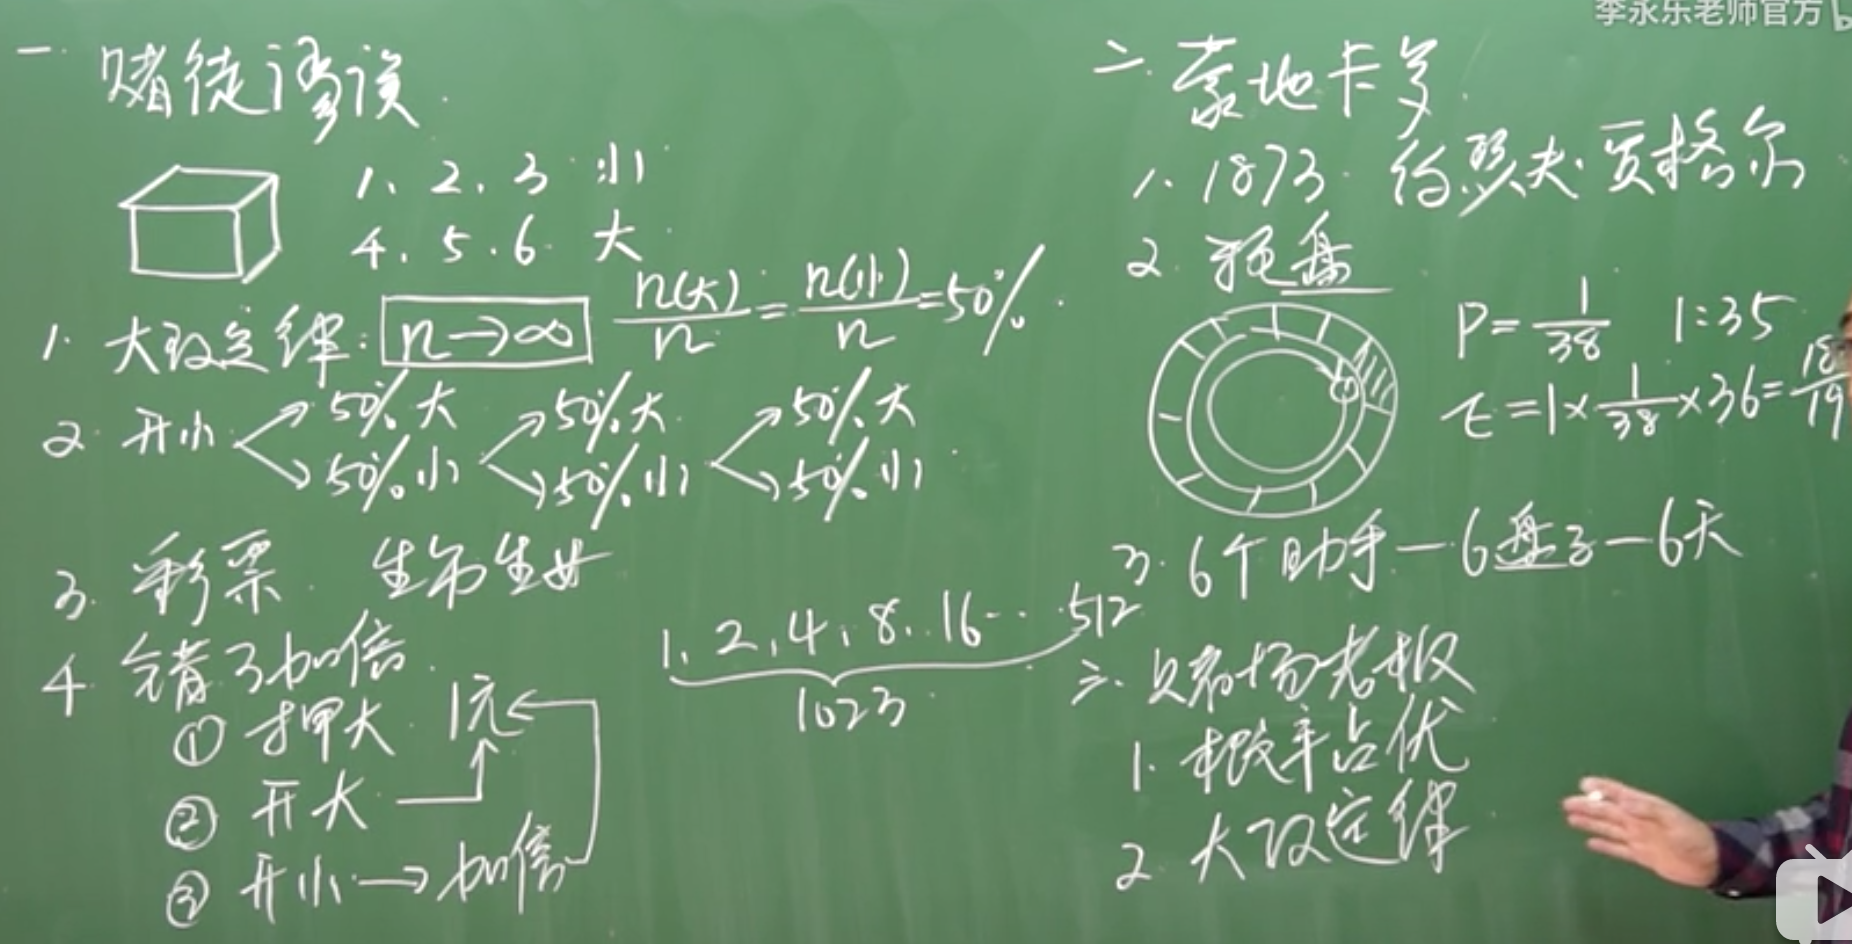 李永乐老师官方
一. 赌徒谬误.
1、2、3 小
4、5、6 大
1. 大数定律: n→∞ n(大)/n = n(小)/n = 50%.
2. 开小 50%大 50%大 50%大
50%小 50%小 50%小
3. 彩票. 生男生女
4. 错了加倍.
① 押大 1元
② 开大
③ 开小→加倍
1、2、4、8、16… 512
1023
二. 蒙地卡罗.
1. 1873. 约瑟夫·贾格尔
2. 轮盘
P=1/38 1:35
E=1×1/38×36=18/19
3. 6个助手—6盘子—6天
三. 赌场老板
1. 概率占优
2. 大数定律